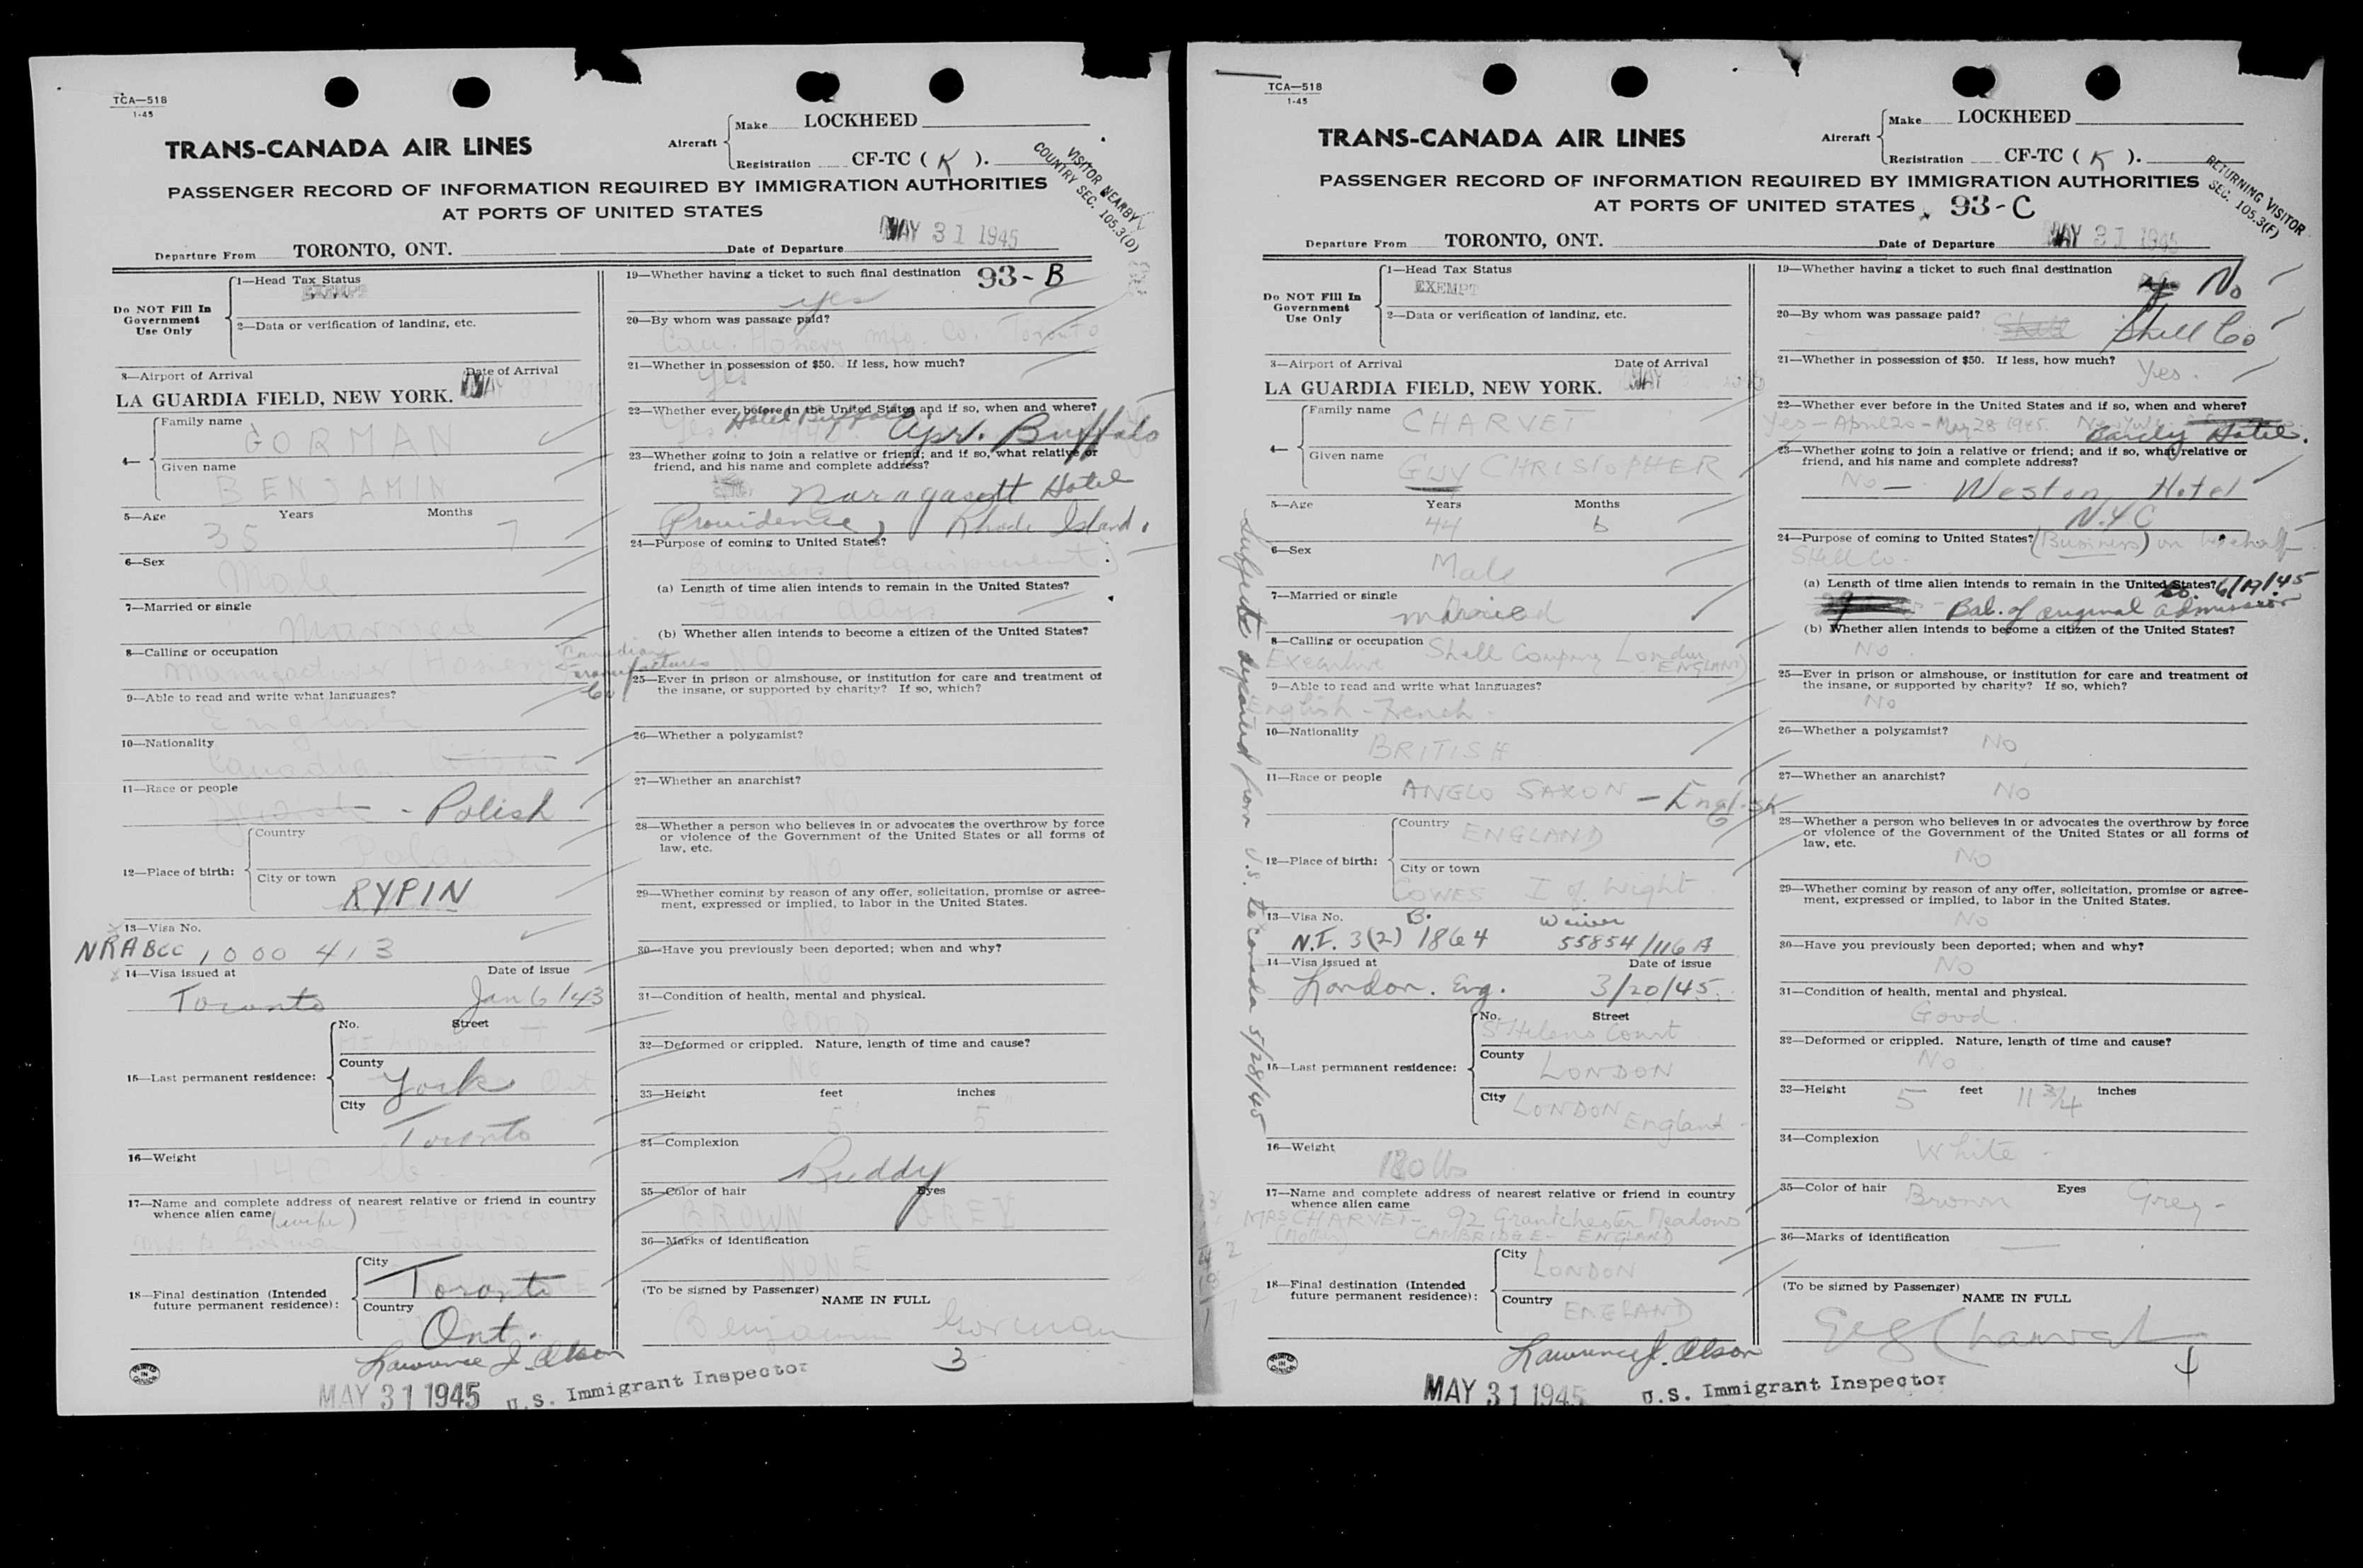 TCA—518
1-45
TRANS-CANADA AIR LINES
Aircraft
Make LOCKHEED
Registration CF-TC ( K ).
VISITOR NEARBY
COUNTRY SEC. 105.3(D)
PASSENGER RECORD OF INFORMATION REQUIRED BY IMMIGRATION AUTHORITIES
AT PORTS OF UNITED STATES
Departure From TORONTO, ONT. Date of Departure MAY 31 1945
Do NOT Fill In
Government
Use Only
1—Head Tax Status
EXEMPT
2—Data or verification of landing, etc.
3—Airport of Arrival Date of Arrival
LA GUARDIA FIELD, NEW YORK. MAY 31
4—
Family name
GORMAN
Given name
BENJAMIN
5—Age Years Months
35 7
6—Sex
Male
7—Married or single
Married
8—Calling or occupation
Manufacturer (Hosiery Canadian
9—Able to read and write what languages?
English
10—Nationality
Canadian Citizen
11—Race or people
Jewish - Polish
12—Place of birth:
Country
Poland
City or town
RYPIN
13—Visa No.
NRABCC 1000413
14—Visa issued at Date of issue
Toronto Jan 6/43
15—Last permanent residence:
No. Street
County
York Ont
City
Toronto
16—Weight
140 lb
17—Name and complete address of nearest relative or friend in country
whence alien came (wife)
Toronto
18—Final destination (Intended
future permanent residence):
City
Toronto
Country
Ont.
Lawrence J. Olson
MAY 31 1945 U.S. Immigrant Inspector
19—Whether having a ticket to such final destination 93-B
yes
20—By whom was passage paid?
Can. Hosiery Mfg. Co. Toronto
21—Whether in possession of $50. If less, how much?
yes
22—Whether ever before in the United States and if so, when and where?
Hotel Buffalo
Yes Apr. Buffalo
23—Whether going to join a relative or friend; and if so, what relative or
friend, and his name and complete address?
Naragasett Hotel
Providence, Rhode Island.
24—Purpose of coming to United States?
Business (equipment)
(a) Length of time alien intends to remain in the United States?
Four days
(b) Whether alien intends to become a citizen of the United States?
NO
25—Ever in prison or almshouse, or institution for care and treatment of
the insane, or supported by charity? If so, which?
No
26—Whether a polygamist?
NO
27—Whether an anarchist?
28—Whether a person who believes in or advocates the overthrow by force
or violence of the Government of the United States or all forms of
law, etc.
NO
29—Whether coming by reason of any offer, solicitation, promise or agree-
ment, expressed or implied, to labor in the United States.
NO
30—Have you previously been deported; when and why?
NO
31—Condition of health, mental and physical.
GOOD
32—Deformed or crippled. Nature, length of time and cause?
No
33—Height feet inches
5 5
34—Complexion
Ruddy
35—Color of hair Eyes
BROWN GREY
36—Marks of identification
NONE
(To be signed by Passenger)
NAME IN FULL
Benjamin Gorman
3
PRINTED IN CANADA
TCA—518
1-45
TRANS-CANADA AIR LINES
Aircraft
Make LOCKHEED
Registration CF-TC ( K ).
RETURNING VISITOR
SEC. 105.3(F)
PASSENGER RECORD OF INFORMATION REQUIRED BY IMMIGRATION AUTHORITIES
AT PORTS OF UNITED STATES 93-C
Departure From TORONTO, ONT. Date of Departure MAY 31 1945
Do NOT Fill In
Government
Use Only
1—Head Tax Status
EXEMPT
2—Data or verification of landing, etc.
3—Airport of Arrival Date of Arrival
LA GUARDIA FIELD, NEW YORK. MAY
4—
Family name
CHARVET
Given name
GUY CHRISTOPHER
5—Age Years Months
44 6
6—Sex
Male
7—Married or single
married
8—Calling or occupation
Executive Shell Company London ENGLAND)
9—Able to read and write what languages?
English - French.
10—Nationality
BRITISH
11—Race or people
ANGLO SAXON - English
12—Place of birth:
Country
ENGLAND
City or town
COWES I of Wight
13—Visa No. B. Waiver
N.I. 3(2) 1864 55854/116A
14—Visa issued at Date of issue
London. Eng. 3/20/45.
15—Last permanent residence:
No. Street
St Helens Court
County
LONDON
City
LONDON England
16—Weight
180 lbs
17—Name and complete address of nearest relative or friend in country
whence alien came
MRS CHARVET- 92 Grantchester Meadows
(Mother) CAMBRIDGE - ENGLAND
18—Final destination (Intended
future permanent residence):
City
LONDON
Country
ENGLAND
Lawrence J. Olson
MAY 31 1945 U.S. Immigrant Inspector
Subject departed from U.S. to Canada 5/28/45
19—Whether having a ticket to such final destination
No
20—By whom was passage paid?
Shell Shell Co
21—Whether in possession of $50. If less, how much?
Yes.
22—Whether ever before in the United States and if so, when and where?
Yes - April 20 - May 28 1945. Barcly Hotel.
23—Whether going to join a relative or friend; and if so, what relative or
friend, and his name and complete address?
No - Weston Hotel
N.Y.C
24—Purpose of coming to United States? (Business) on behalf
Shell Co.
(a) Length of time alien intends to remain in the United States? 6/19/45
Bal. of original admission
(b) Whether alien intends to become a citizen of the United States?
No
25—Ever in prison or almshouse, or institution for care and treatment of
the insane, or supported by charity? If so, which?
No
26—Whether a polygamist?
No
27—Whether an anarchist?
No
28—Whether a person who believes in or advocates the overthrow by force
or violence of the Government of the United States or all forms of
law, etc.
No
29—Whether coming by reason of any offer, solicitation, promise or agree-
ment, expressed or implied, to labor in the United States.
No
30—Have you previously been deported; when and why?
No
31—Condition of health, mental and physical.
Good.
32—Deformed or crippled. Nature, length of time and cause?
No
33—Height 5 feet 11 3/4 inches
34—Complexion
White -
35—Color of hair Brown Eyes Grey -
36—Marks of identification
(To be signed by Passenger)
NAME IN FULL
Charvet
4
PRINTED IN CANADA